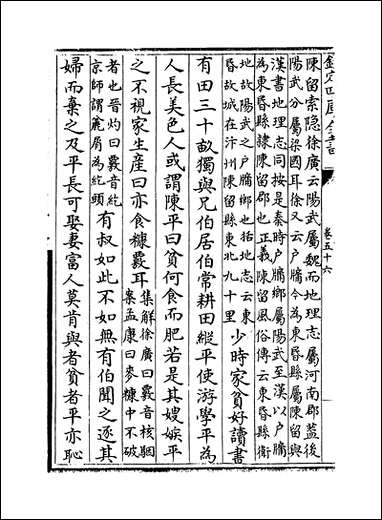 欽定四庫全書
卷五十六
陳留索隱徐廣云陽武屬魏而地理志屬河南郡蓋後
陽武分屬梁國耳徐又云户牖今為東昏縣屬陳留與
漢書地理志同按是秦時户牖鄉屬陽武至漢以户牖
為東昏縣隷陳留郡也正義陳留風俗傳云東昏縣衛
地故陽武之户牖鄉也括地志云東
昏故城在汴州陳留縣東北九十里
少時家貧好讀書
有田三十畝獨與兄伯居伯常耕田縱平使游學平為
人長美色人或謂陳平曰貧何食而肥若是其嫂嫉平
之不視家生産曰亦食糠覈耳
集解徐廣曰覈音核駰
案孟康曰麥糠中不破
者也晉灼曰覈音紇
京師謂麄屑為紇頭
有叔如此不如無有伯聞之逐其
婦而棄之及平長可娶妻富人莫肯與者貧者平亦恥